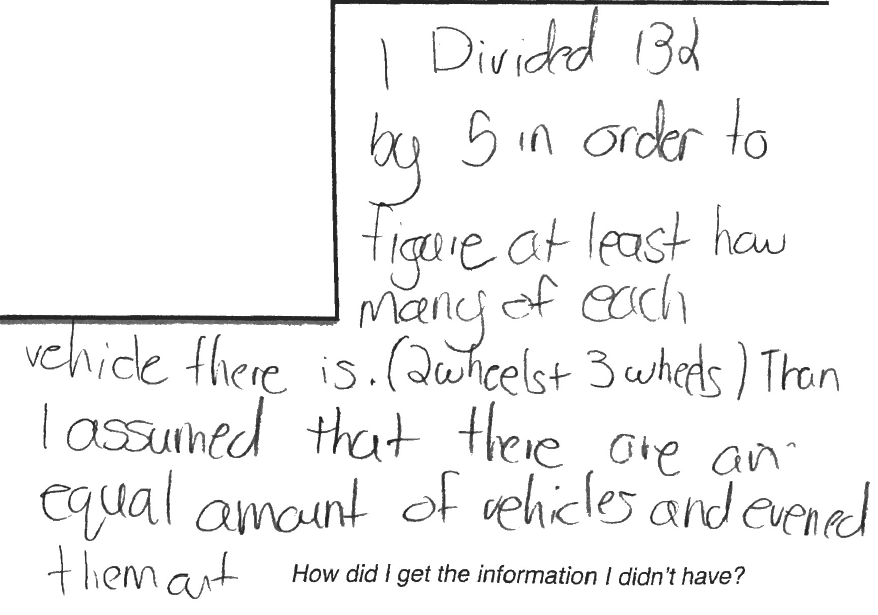 I Divided 132
by 5 in order to
figure at least how
many of each
vehicle there is. (2 wheels + 3 wheels) Than
I assumed that there are an
equal amount of vehicles and evened
them out How did I get the information I didn't have?